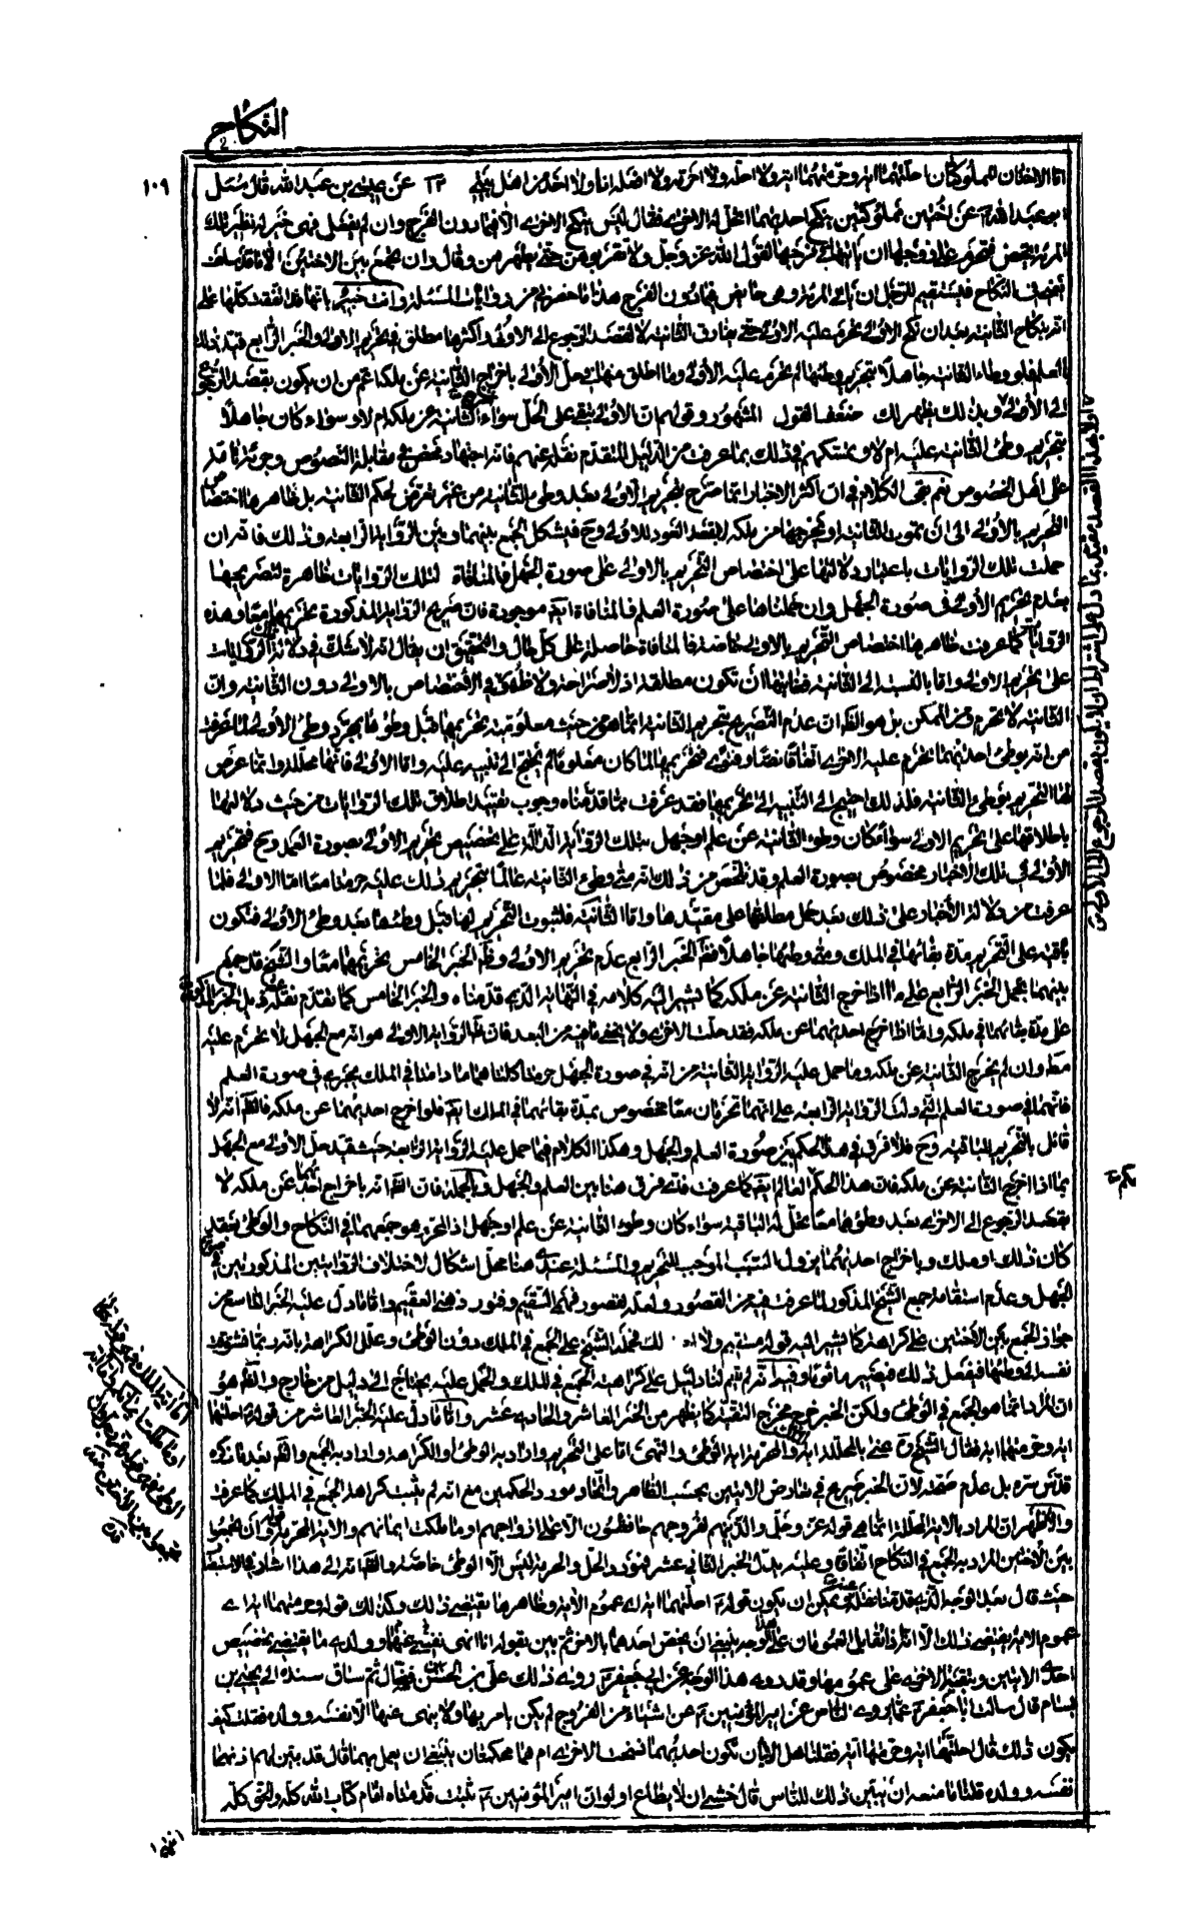 النكاح
١٠٩
اما الاختان المملوكتان احلتهما اية وحرمتهما اية ولا احله ولا احرمه ولا افعله انا ولا احد من اهل بيتي ١٢ عن عيسى بن عبد الله قال سئل
ابو عبد الله عن اختين مملوكتين ينكح احديهما اتحل له الاخرى فقال ليس ينكح الاخرى الا فيما دون الفرج وان لم يفعل فهو خير له نظير تلك
المرءة تحيض فتحرم على زوجها ان ياتيها في فرجها لقول الله عز وجل ولا تقربوهن حتى يطهرن وقال وان تجمعوا بين الاختين الا ما قد سلف
يعني في النكاح فيستقيم للرجل ان ياتي امرءته وهي حائض فيما دون الفرج هذا ما حضرني من روايات المسئلة وانت خبير بانها قد اتفقت كلها على
انه بنكاح الثانية بعد ان نكح الاولى يحرم عليه الاولى حتى يفارق الثانية لا لقصد الرجوع الى الاولى واكثرها مطلق في تحريم الاولى والخبر الرابع قيد ذلك
بالعلم فلو وطء الثانية جاهلا بتحريم وطئها لم يحرم عليه الاولى وما اطلق منها في حل الاولى باخراج الثانية عن ملكه اعم من ان يكون بقصد الرجوع
الى الاولى وبذلك يظهر لك ضعف القول المشهور وقولهم ان الاولى تبقى على الحل سواء اخرج الثانية عن ملكه ام لا وسواء كان جاهلا
بتحريم وطئ الثانية عليه ام لا وتمسكهم في ذلك بما عرفت من الدليل المتقدم نقله عنهم فانه اجتهاد محض في مقابلة النصوص وجرئة تامة
على اهل الخصوص نعم بقى الكلام في ان اكثر الاخبار انما صرح بتحريم الاولى بعد وطئ الثانية من غير تعرض لحكم الثانية بل ظاهرها اختصاص
التحريم بالاولى الى ان تموت الثانية او يخرجها من ملكه لا بقصد العود للاولى وح فيشكل الجمع بينها وبين الرواية الرابعة وذلك فانه ان
حملت تلك الروايات باعتبار دلالتها على اختصاص التحريم بالاولى على صورة الجهل فالمنافاة لتلك الروايات ظاهرة لتصريحها
بعدم تحريم الاولى في صورة الجهل وان حملناها على صورة العلم فالمنافاة ايضا موجودة فان صريح الرواية المذكورة تحريمهما معا وهذه
الروايات كما عرفت ظاهرها اختصاص التحريم بالاولى خاصة فالمنافاة حاصلة على كل حال والتحقيق ان يقال انه لا شك في دلالة الروايات
على تحريم الاولى واما بالنسبة الى الثانية فغايتها ان تكون مطلقة اذ لا صراحة ولا ظهور في الاختصاص بالاولى دون الثانية وان
الثانية لا تحرم ومن الممكن بل هو الظ ان عدم التصريح بتحريم الثانية انما هو من حيث معلومية تحريمها قبل وطئها بمجرد وطئ الاولى لما عرفت
من انه بوطئ احديهما تحرم عليه الاخرى اتفاقا نصا وفتوى فتحريمها لما كان معلوما لم يحتج الى تنبيه عليه واما الاولى فانها محللة وانما عرض
لها التحريم بوطئ الثانية فلذلك احتيج الى التنبيه الى تحريمها فقد عرفت مما قدمناه وجوب تقييد اطلاق تلك الروايات من حيث دلالتها
باطلاقها على تحريم الاولى سواء كان وطء الثانية عن علم او جهل بتلك الرواية الدالة على تخصيص تحريم الاولى بصورة العلم وح فتحريم
الاولى في تلك الاخبار مخصوص بصورة العلم وقد تلخص من ذلك انه متى وطئ الثانية عالما بتحريم ذلك عليه حرمتا معا اما الاولى فلما
عرفت من دلالة الاخبار على ذلك بعد حمل مطلقها على مقيدها واما الثانية فلثبوت التحريم لها قبل وطئها بعد وطئ الاولى فتكون
باقية على التحريم مدة بقائها في الملك ومتى وطئها جاهلا فظ الخبر الرابع عدم تحريم الاولى وظ الخبر الخامس تحريمهما معا والشيخ قد جمع
بينهما بحمل الخبر الرابع على ما اذا اخرج الثانية عن ملكه كما يشير اليه كلامه في النهاية الذي قدمناه والخبر الخامس كما تقدم نقله في ذيل الخبر المذكور
على مدة بقائهما في ملكه واما اذا اخرج احديهما عن ملكه فقد حلت الاخرى ولا يخفى ما فيه من البعد فان ظ الرواية الاولى هو انه مع الجهل لا تحرم عليه
مطلقا وان لم يخرج الثانية عن ملكه وما حمل عليه الرواية الثانية من انه في صورة الجهل حرمتا كلتاهما ما دامتا في الملك يجري في صورة العلم
فانهما في صورة العلم التي دلت الرواية الرابعة على انهما تحرمان معا مخصوص بمدة بقائهما في الملك ايضا فلو اخرج احديهما عن ملكه فالظ انه لا
قائل بالتحريم للباقية وح فلا فرق في هذا الحكم بين صورة العلم والجهل وهكذا الكلام فيما حمل عليه الرواية الرابعة حيث قيد حل الاولى مع الجهل
بما اذا اخرج الثانية عن ملكه فان هذا الحكم في العالم ايضا كما عرفت فاى فرق هنا بين العلم والجهل وبالجملة فان الظ انه باخراج احديهما عن ملكه لا
بقصد الرجوع الى الاخرى بعد وطئهما معا تحل له الباقية سواء كان وطء الثانية عن علم او جهل اذ المحرم هو جمعهما في النكاح والوطئ بعقد
كان ذلك او ملك وباخراج احديهما يزول السبب الموجب للتحريم والمسئلة عندى هنا محل اشكال لاختلاف الروايتين المذكورتين في صورة
الجهل وعدم استقامة جمع الشيخ المذكور لما عرفت فيه من القصور ولعله لقصور فهمي السقيم وفتور ذهني العقيم واما ما دل عليه الخبر التاسع من
جواز الجمع بين الاختين على كراهة كما يشير اليه قوله مستقيم ولا لك فحمله الشيخ على الجمع في الملك دون الوطئ وعلل الكراهة بانه ربما تشوقت
نفسه الى وطئها فيفعل ذلك فيصير ماثوما وفيه انه لم يقم لنا دليل على كراهية الجمع في الملك والحمل عليه يحتاج الى دليل من خارج والظ هو
ان المراد انما هو الجمع في الوطئ ولكن الخبر خرج مخرج التقية كما يظهر من الخبر العاشر والحادي عشر واما ما دل عليه الخبر العاشر من قوله احلتها
اية وحرمتها اية فقال الشيخ عنى بالمحللة اية والمحرمة اية الوطئ والنهى اما على التحريم واراد به الوطئ او الكراهة واراد به الجمع والظ بعد ما ذكره
قدس سره بل عدم صحته لان الخبر صريح في تعارض الايتين بحسب الظاهر واتحاد مورد الحكمين مع انه لم يثبت كراهة الجمع في الملك كما عرفت
والاظهر ان المراد بالاية المحللة انما هي قوله عز وجل والذين هم لفروجهم حافظون الا على ازواجهم او ما ملكت ايمانهم والاية المحرمة قوله وان تجمعوا
بين الاختين المراد به الجمع في النكاح اتفاقا وعليه يدل الخبر الثاني عشر فمورد الحل والحرمة ليس الا الوطئ خاصة والظ انه الى هذا اشار في الاستبصار
حيث قال بعد الوجه الذي قدمنا نقله عنه ويمكن ان يكون قوله احلتهما اية اى عموم الاية وظاهرها يقتضي ذلك وكذلك قوله حرمتهما اية اى
عموم الاية يقتضى ذلك الا انه اذا تقابل العمومان على هذا الوجه ينبغي ان يخص احدهما بالاخر ثم بين بقوله انا انهى نفسي عنهما وولدى ما يقتضى تخصيص
احدى الايتين وتبقية الاخرى على عمومها وقد روى هذا الوجه عن ابي جعفر روى ذلك على بن الحسن بن فضال ثم ساق سنده الى يحيى بن
بسام قال سالت ابا جعفر عما يروى الناس عن امير المؤمنين عن اشياء من الفروج لم يكن يامر بها ولا ينهى عنها الا نفسه وولده فقلت كيف
يكون ذلك قال احلتها اية وحرمتها اية فقلنا هل الايتان تكون احديهما نسخت الاخرى ام هما محكمتان ينبغي ان يعمل بهما قال قد بين لهم اذ نهى
نفسه وولده قلنا ما منعه ان يبين ذلك للناس قال خشي ان لا يطاع ولو ان امير المؤمنين ثبتت قدماه اقام كتاب الله كله والحق كله